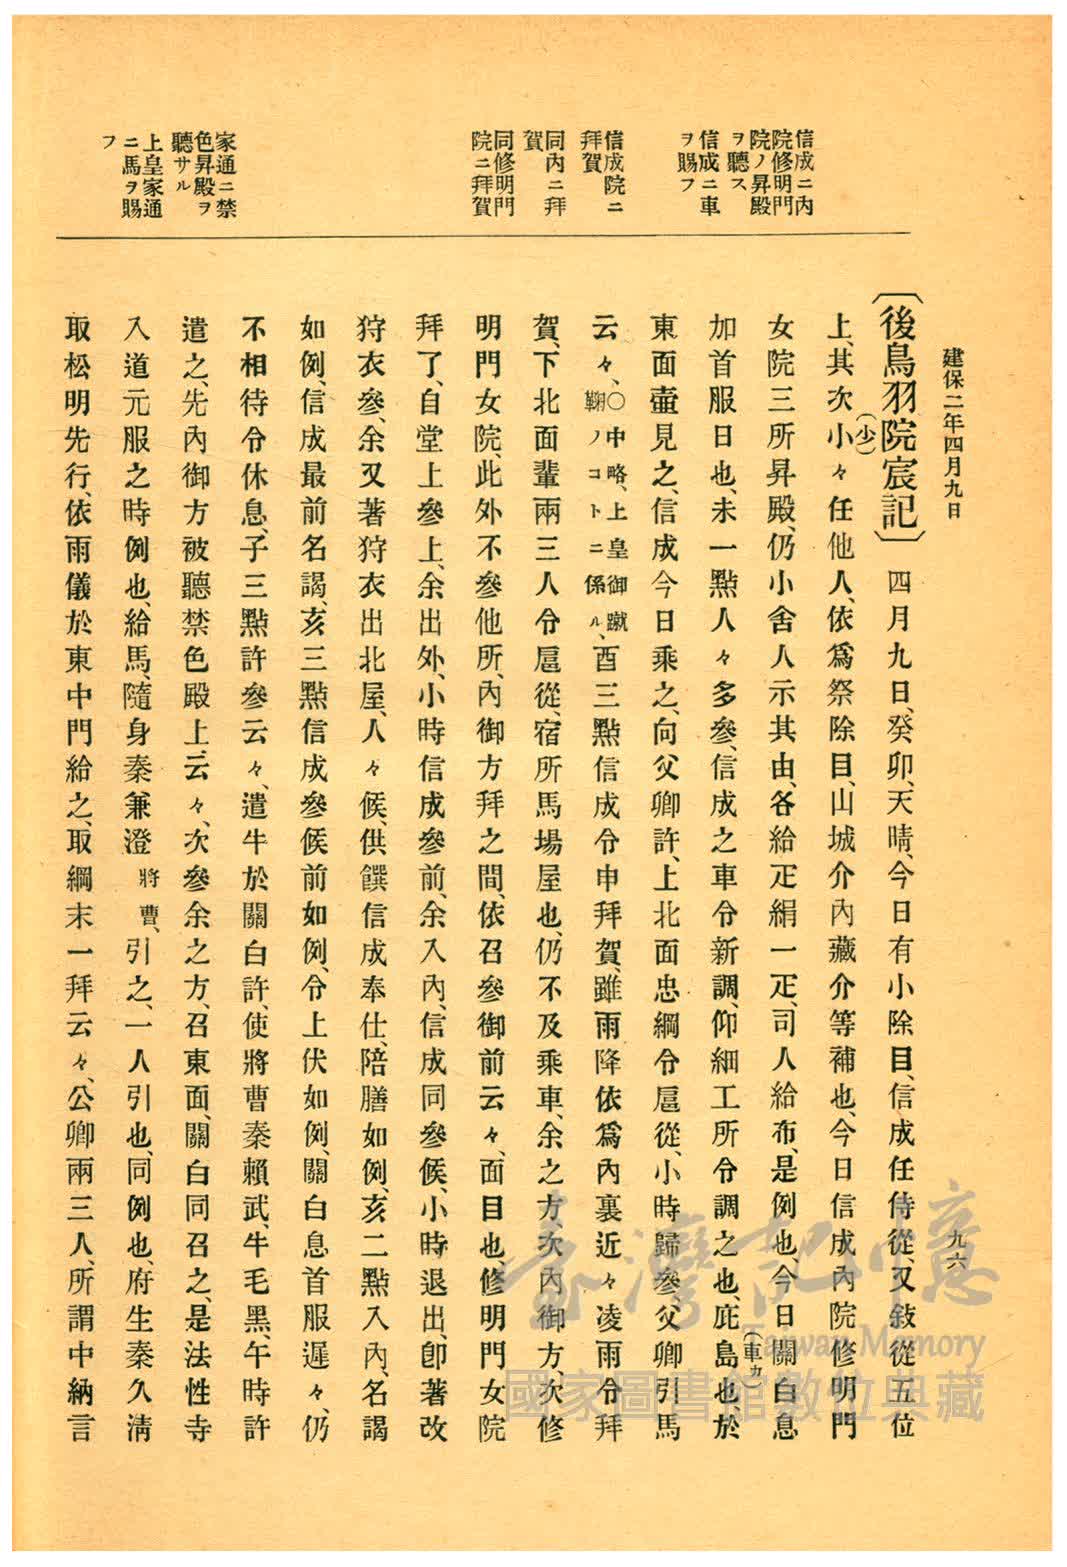 建保二年四月九日
九六
信成ニ內
院修明門
院ノ昇殿
ヲ聽ス
信成ニ車
ヲ賜フ
信成院ニ
拜賀
同內ニ拜
賀
同修明門
院ニ拜賀
家通ニ禁
色昇殿ヲ
聽サル
上皇家通
ニ馬ヲ賜
フ
〔後鳥羽院宸記〕　四月九日、癸卯、天晴、今日有小除目、信成任侍從、又敍從五位
上、其次小(少)々任他人、依爲祭除目、山城介內藏介等補也、今日信成內院修明門
女院三所昇殿、仍小舍人示其由、各給疋絹一疋、司人給布、是例也、今日關白息
加首服日也、未一點人々多參、信成之車令新調、仰細工所令調之也、庇島(車カ)也、於
東面壷見之、信成今日乘之、向父卿許、上北面忠綱令扈從、小時歸參、父卿引馬
云々、〇中略、上皇御蹴鞠ノコトニ係ル、酉三點信成令申拜賀、雖雨降依爲內裏近々凌雨令拜
賀、下北面輩兩三人令扈從、宿所馬場屋也、仍不及乘車、余之方、次內御方、次修
明門女院、此外不參他所、內御方拜之間、依召參御前云々、面目也、修明門女院
拜了、自堂上參上、余出外、小時信成參前、余入內、信成同參候、小時退出、卽著改
狩衣參、余又著狩衣出北屋、人々候、供饌信成奉仕、陪膳如例、亥二點入內、名謁
如例、信成最前名謁、亥三點信成參候前如例、令上伏如例、關白息首服遲々、仍
不相待令休息、子三點許參云々、遣牛於關白許、使將曹秦賴武、牛毛黑、午時許
遣之、先內御方被聽禁色殿上云々、次參余之方、召東面、關白同召之、是法性寺
入道元服之時例也、給馬、隨身秦兼澄將曹、引之、一人引也、同例也、府生秦久淸
取松明先行、依雨儀於東中門給之、取綱末一拜云々、公卿兩三人、所謂中納言
臺灣記憶
Taiwan Memory
國家圖書館數位典藏